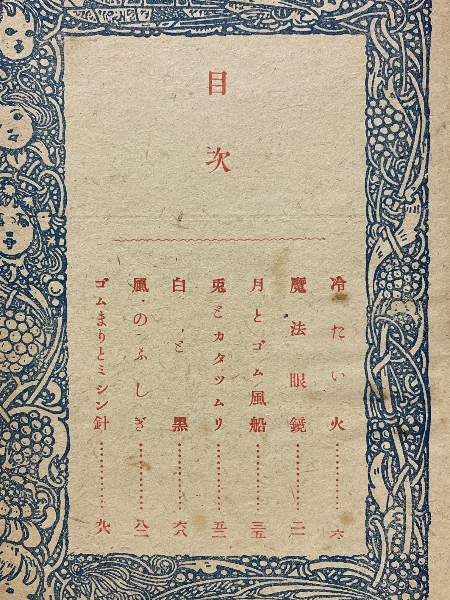 目次
冷たい火…………六
魔法眼鏡…………二一
月とゴム風船…………三五
兎とカタツムリ…………五二
白と黒…………六八
風のふしぎ…………八二
ゴムまりとミシン針…………九八